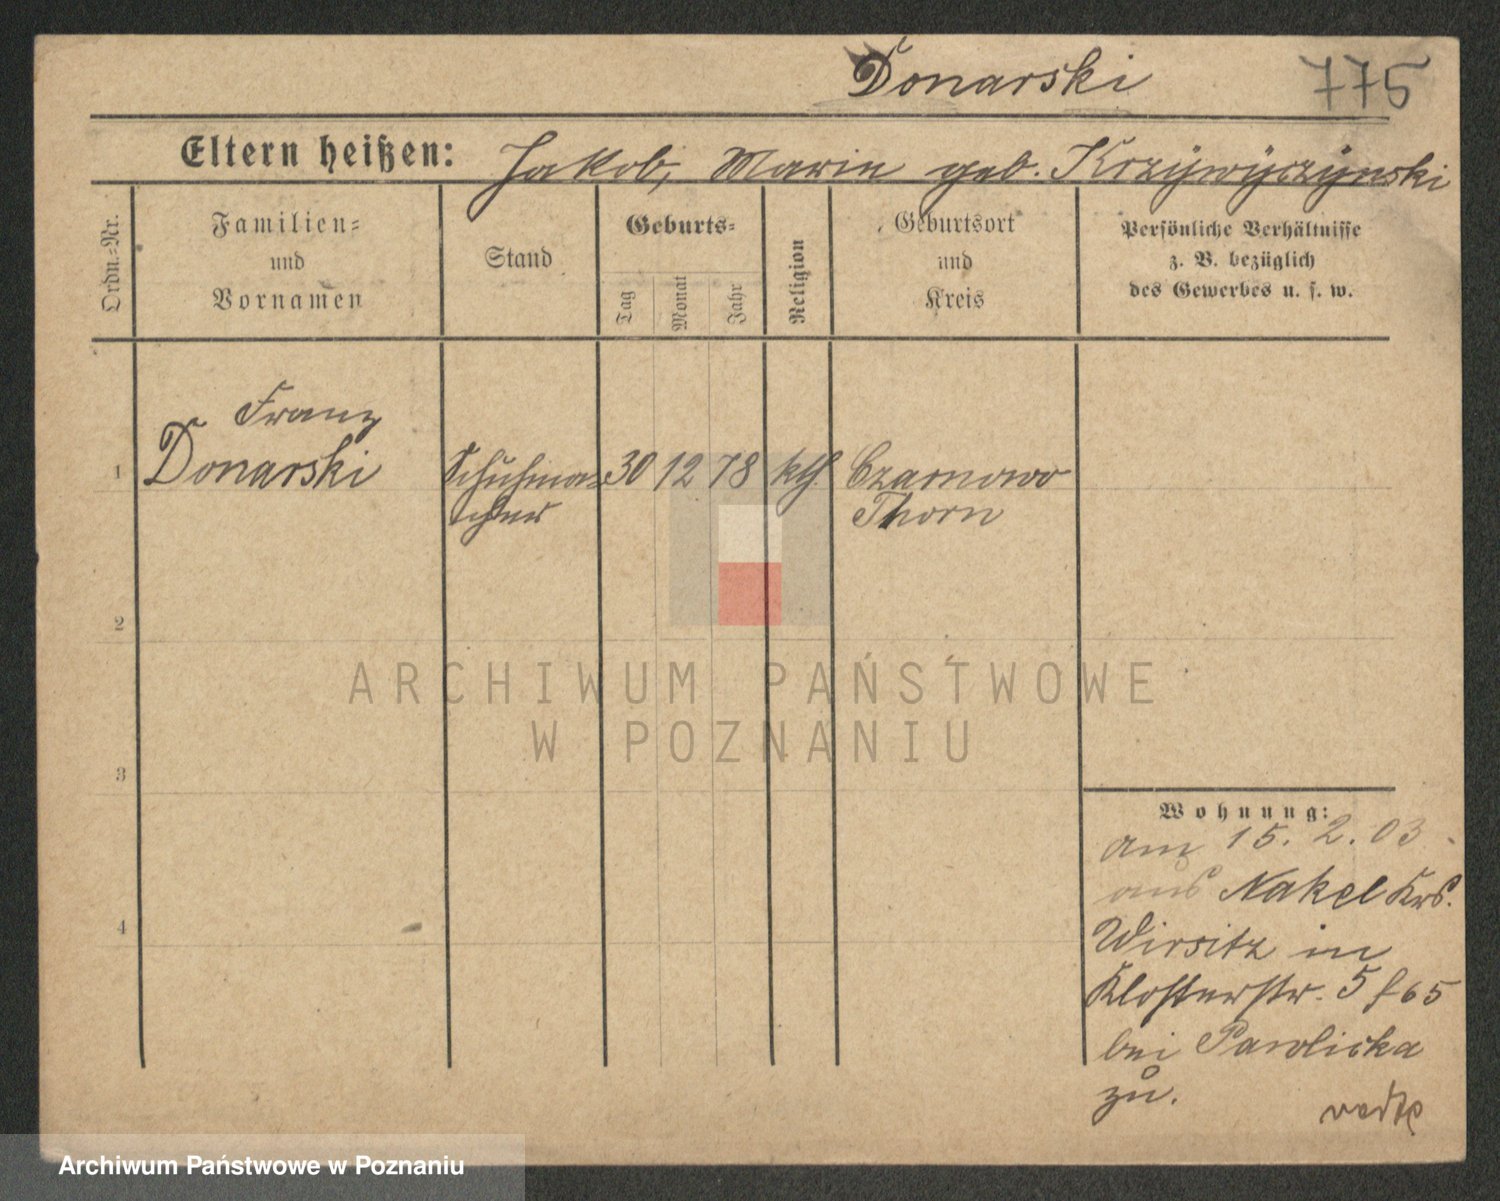 Donarski 775
Eltern heißen: Jakob, Marie geb. Krzywyczynski
Ordn.=Nr.
Familien=
und
Vornamen
Stand
Geburts=
Tag
Monat
Jahr
Religion
Geburtsort
und
Kreis
Persönliche Verhältnisse
z. B. bezüglich
des Gewerbes u. s. w.
Franz
1 Donarski Schuhma= 30 12 78 kth. Czarnowo
cher Thorn
2
3
4
Wohnung:
am 15. 2. 03.
aus Nakel Krs.
Wirsitz in
Klosterstr. 5
bei Pawlicka
zu.
ARCHIWUM PAŃSTWOWE
W POZNANIU
Archiwum Państwowe w Poznaniu